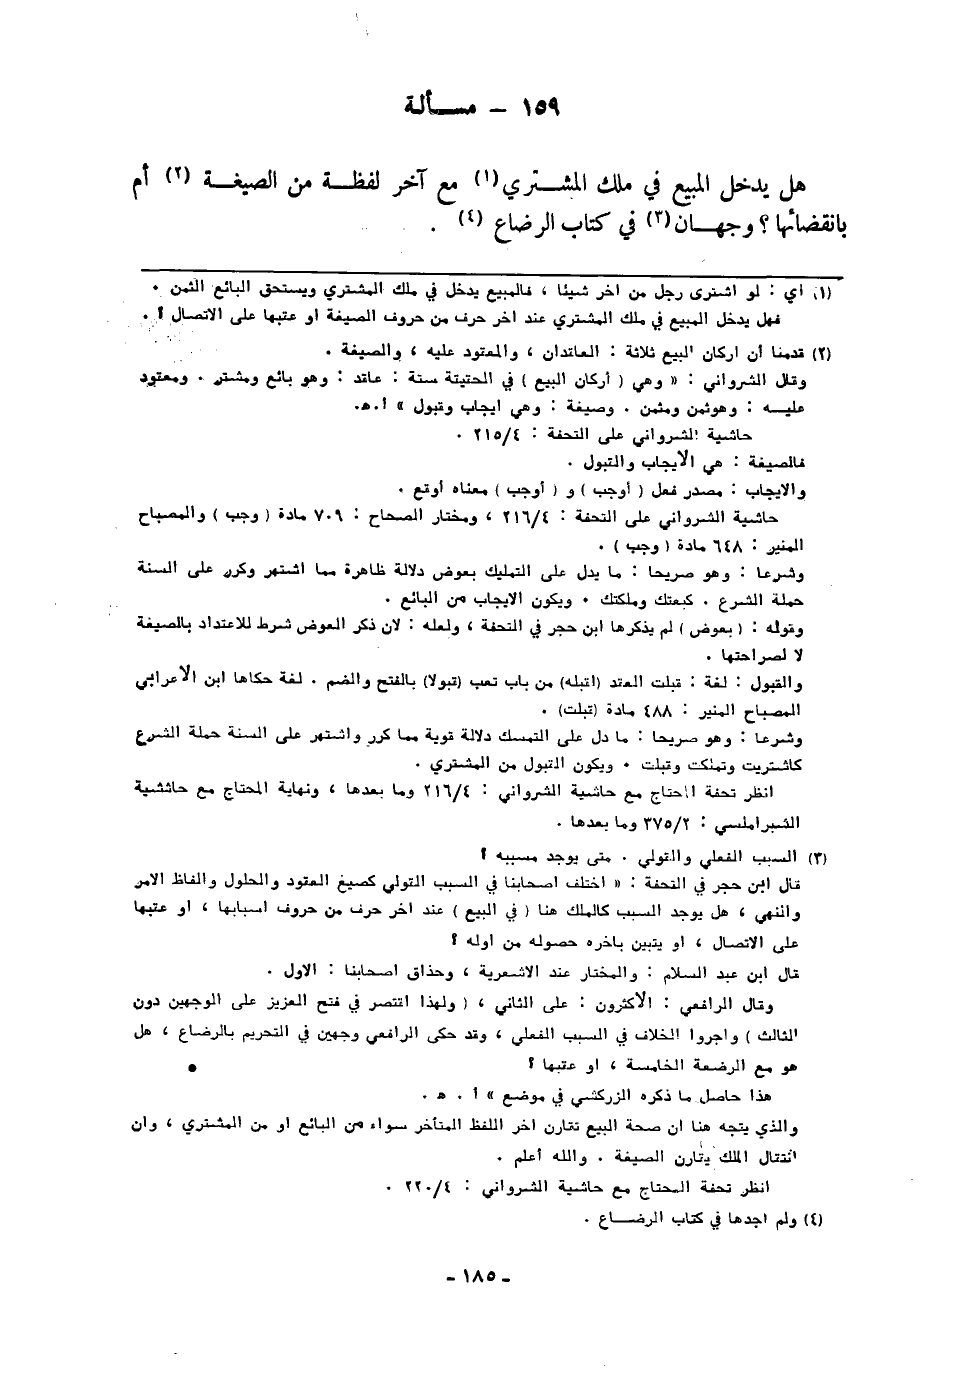 ١٥٩ – مسـألة
هل يدخل المبيع في ملك المشـتري(١) مع آخر لفظـة من الصيغـة (٢) أم
بانقضائها ؟ وجهـان(٣) في كتاب الرضاع (٤) .
(١) أي : لو اشترى رجل من آخر شيئا ، فالمبيع يدخل في ملك المشتري ويستحق البائع الثمن .
فهل يدخل المبيع في ملك المشتري عند اخر حرف من حروف الصيغة او عتبها على الاتصال ؟ .
(٢) قدمنا أن اركان البيع ثلاثة : العاتدان ، والمعتود عليه ، والصيغة .
وقال الشرواني : « وهي ( أركان البيع ) في الحتيتة ستة : عاتد : وهو بائع ومشتر . ومعتود
عليـه : وهوثمن ومثمن . وصيغة : وهي ايجاب وتبول » أ.هـ.
حاشية الشرواني على التحفة : ٢١٥/٤ .
فالصيغة : هي الأيجاب والتبول .
والايجاب : مصدر فعل ( أوجب ) و ( أوجب ) معناه أوتع .
حاشية الشرواني على التحفة : ٢١٦/٤ ، ومختار الصحاح : ٧٠٩ مادة ( وجب ) والمصباح
المنير : ٦٤٨ مادة ( وجب ) .
وشرعا : وهو صريحا : ما يدل على التمليك بعوض دلالة ظاهرة مما اشتهر وكرر على السنة
حملة الشرع . كبعتك وملكتك . ويكون الايجاب من البائع .
وتوله : ( بعوض ) لم يذكرها ابن حجر في التحفة ، ولعله : لان ذكر العوض شرط للاعتداد بالصيغة
لا لصراحتها .
والتبول : لغة : تبلت العتد (اتبله) من باب تعب (تبولا) بالفتح والضم . لغة حكاها ابن الأعرابي
المصباح المنير : ٤٨٨ مادة (تبلت) .
وشرعا : وهو صريحا : ما دل على التمسك دلالة توية مما كرر واشتهر على السنة حملة الشرع
كاشتريت وتملكت وتبلت . ويكون التبول من المشتري .
انظر تحفة المحتاج مع حاشية الشرواني : ٢١٦/٤ وما بعدها ، ونهاية المحتاج مع حاشية
الشبراملسي : ٣٧٥/٢ وما بعدها .
(٣) السبب الفعلي والتولي . متى يوجد مسببه ؟
قال ابن حجر في التحفة : « اختلف اصحابنا في السبب التولي كصيغ العتود والحلول والفاظ الامر
والنهي ، هل يوجد السبب كالملك هنا ( في البيع ) عند اخر حرف من حروف اسبابها ، او عتبها
على الاتصال ، او يتبين باخره حصوله من اوله ؟
قال ابن عبد السلام : والمختار عند الاشعرية ، وحذاق اصحابنا : الاول .
وقال الرافعي : الأكثرون : على الثاني ، ( ولهذا اتتصر في فتح العزيز على الوجهين دون
الثالث ) واجروا الخلاف في السبب الفعلي ، وتد حكى الرافعي وجهين في التحريم بالرضاع ، هل
هو مع الرضعة الخامسة ، او عتبها ؟
هذا حاصل ما ذكره الزركشي في موضع » أ . هـ .
والذي يتجه هنا ان صحة البيع تتارن اخر اللفظ المتأخر سواء من البائع او من المشتري ، وان
انتتال الملك يتارن الصيغة . والله أعلم .
انظر تحفة المحتاج مع حاشية الشرواني : ٢٢٠/٤ .
(٤) ولم اجدها في كتاب الرضـاع .
- ١٨٥ -